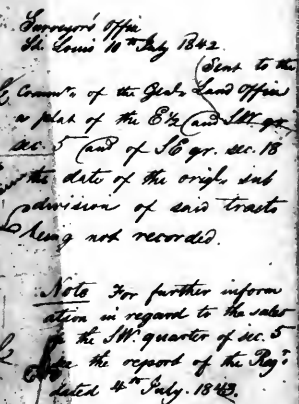 Surveyor's Office
St. Louis 10th July 1842.
(Sent to the
Comm'r of the Genl. Land Office
a plat of the E½ (and SW. qr.
sec. 5 (and of SE qr. sec. 18
the date of the origl. sub
division of said tracts
being not recorded.
Note For further inform
ation in regard to the sales
of the SW. quarter of sec. 5
see the report of the Regr.
dated 4th July. 1843.